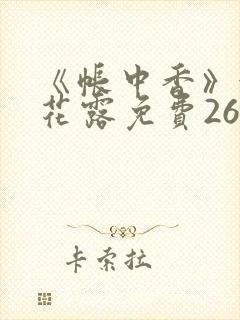 《帐中香》
花露免費26
卡索拉